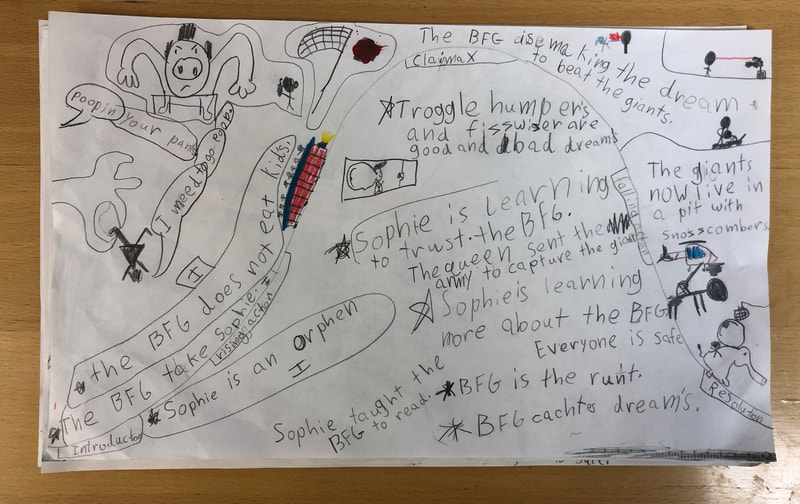 The BFG dise making the dream
to beat the giants.
ClaimaX
poopin your pants
I need to go poop
Troggle humpers
and fisswiser are
good and bad dreams
I
the BFG does not eat kids.
The BFG take Sophie.
rising action
Sophie is an Orphen
I
Introducto
Sophie is learning
to trust. the BFG.
The queen sent the
army to capture the giant
Sophie is learning
more about the BFG
Everyone is safe
BFG is the runt.
BFG cachtes dream's.
Sophie taught the
BFG to read.
falling action
The giants
now live in
a pit with
snosscombers.
ReSoluton